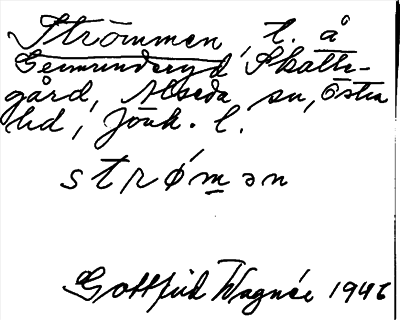 Strömmen, t. å
Germunderyd Skatte-
gård, Alseda sn, Östra
hd, Jönk. l.
strǿmən
Gottfrid Wagnér 1946